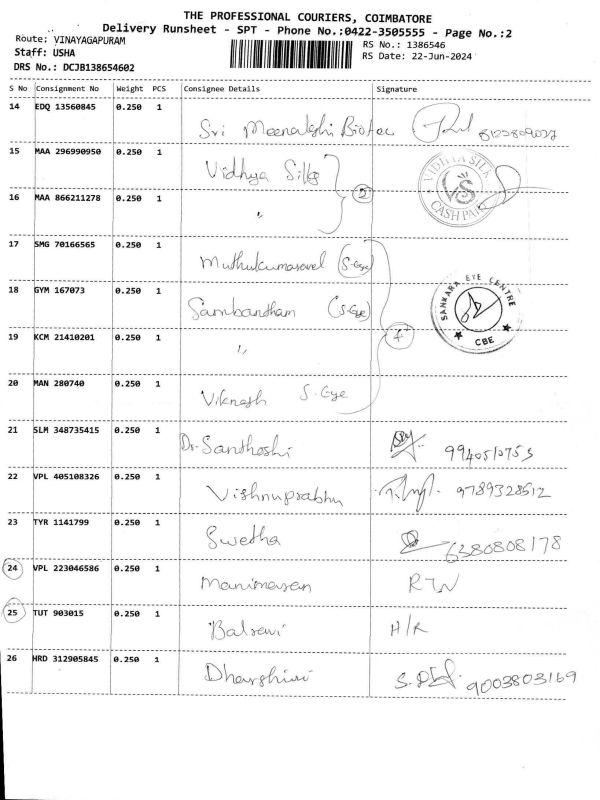 THE PROFESSIONAL COURIERS, COIMBATORE
Delivery Runsheet - SPT - Phone No.:0422-3505555 - Page No.:2
Route: VINAYAGAPURAM
RS No.: 1386546
Staff: USHA
RS Date: 22-Jun-2024
DRS No.: DCJB138654602
S No Consignment No Weight PCS Consignee Details Signature
14 EDQ 13560845 0.250 1 Sri Meenakshi Biotec
15 MAA 296990950 0.250 1 Vidhya Silks
VIDHYA SILK
VS
CASH PAID
16 MAA 866211278 0.250 1 "
2
17 SMG 70166565 0.250 1 Muthukumaravel (S-Eye)
18 GYM 167073 0.250 1 Sambantham (S-Eye)
SANKARA EYE CENTRE
CBE
19 KCM 21410201 0.250 1 "
4
20 MAN 280740 0.250 1 Viknesh S-Eye
21 SLM 348735415 0.250 1 Dr. Santhoshi 9940510753
22 VPL 405108326 0.250 1 Vishnuprabhu 9789328512
23 TYR 1141799 0.250 1 Swetha 6380808178
24 VPL 223046586 0.250 1 Manimaran RTN
25 TUT 903015 0.250 1 H/R
26 HRD 312905845 0.250 1 Dharshini 9003803169